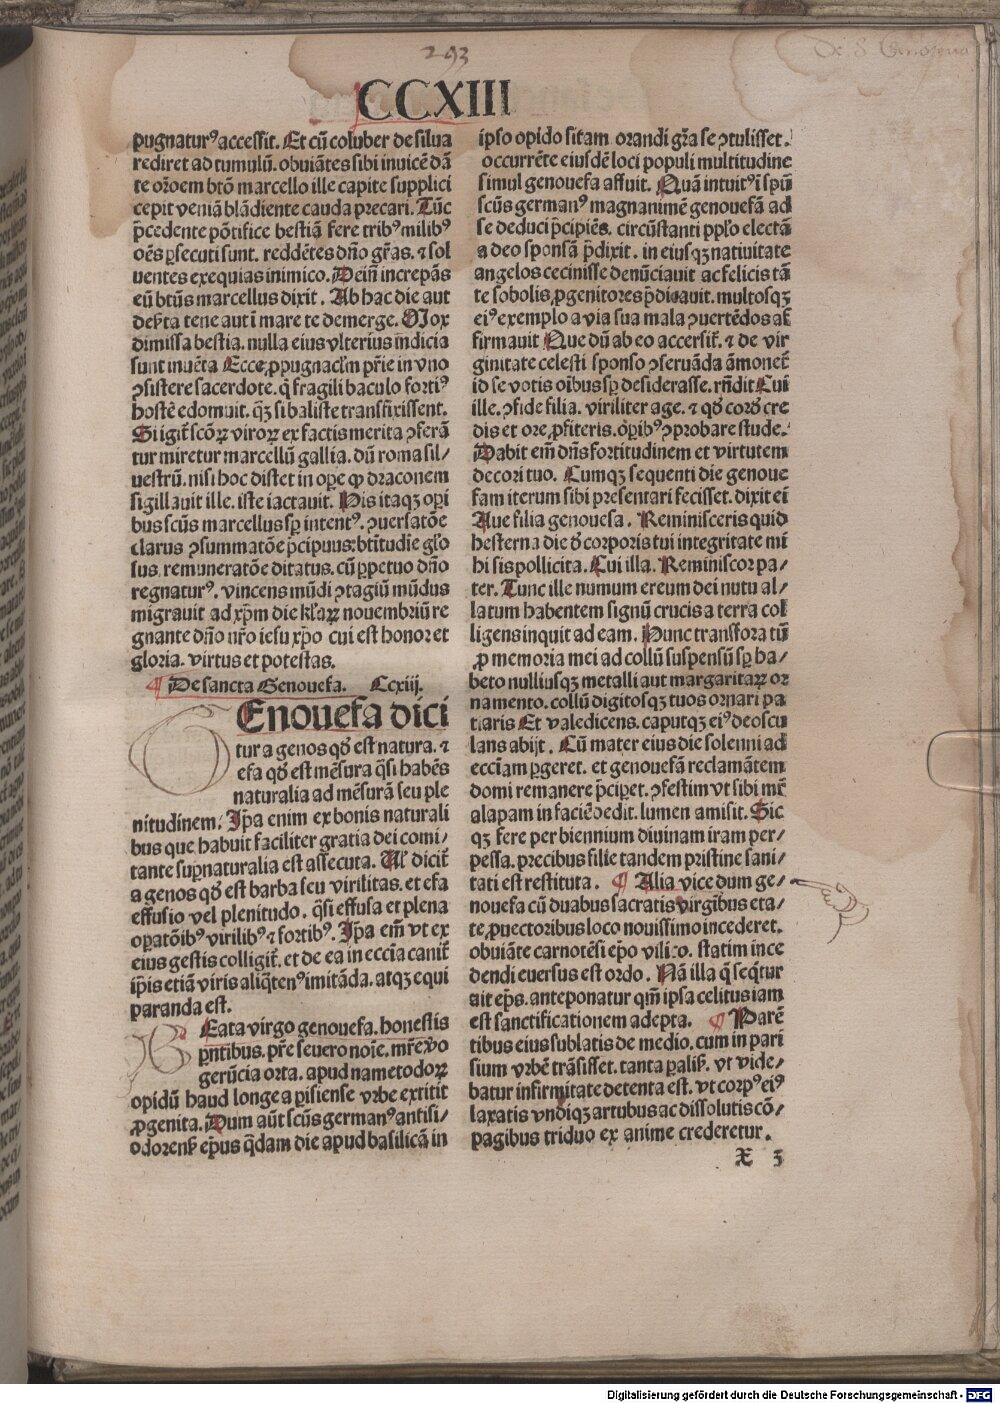 293
De S. Genofeua
CCXIII
pugnatur⁹ accessit. Et cū coluber de silua
rediret ad tumulū. obuiātes sibi inuicē dā
te oroem btō marcello ille capite supplici
cepit veniā blādiente cauda precari. Tūc
p̄cedente pōtifice bestiā fere trib⁹ milib⁹
oēs ꝑsecuti sunt. reddētes dn̄o gr̄as. ⁊ sol
uentes exequias inimico. Dein̄ increpās
eū bt̄us marcellus dixit. Ab hac die aut
deẜta tene aut ī mare te demerge. Mox
dimissa bestia. nulla eius vlterius in̄dicia
sunt inuēta Ecce ꝓpugnacl̄m pr̄ie in vno
ꝯsistere sacerdote. q̄ fragili baculo forti⁹
hostē edomuit. qꝫ si baliste transfixissent.
Si igit̄ scōꝝ viroꝝ ex factis merita ꝯferā
tur miretur marcellū gallia. dū roma sil/
uestrū. nisi hoc distet in oꝑe ꝙ draconem
sigillauit ille. iste iactauit. His itaqꝫ oꝑi
bus scūs marcellus sꝑ intent⁹. ꝯuersatōe
clarus ꝯsummatōe p̄cipuus: btītudīe glo
sus. remuneratōe ditatus. cū ꝑpetuo dn̄o
regnatur⁹. vincens mūdi ꝯtagiū mūdus
migrauit ad xp̄m die kl̄aꝝ nouembriū re
gnante dn̄o nr̄o iesu xp̄o cui est honor et
gloria. virtus et potestas.
¶ De sancta Genouefa. Ccxiij.
Enouefa dici
tur a genos qḋ est natura. ⁊
efa qḋ est mēsura q̄si habēs
naturalia ad mēsurā seu ple
nitudinem. Ip̄a enim ex bonis naturali
bus que habuit faciliter gratia dei comi/
tante suꝑnaturalia est assecuta. Ul̄ dicit̄
a genos qḋ est barba seu virilitas. et efa
effusio vel plenitudo. q̄si effusa et plena
oꝑatōib⁹ virilib⁹ ⁊ fortib⁹. Ip̄a em̄ vt ex
eius gestis colligit̄. et de ea in eccīa canit̄
ip̄is etiā viris aliq̄ten⁹ imitāda. atqꝫ equi
paranda est.
Eata virgo genouefa. honestis
ꝑntibus. pr̄e seuero noīe. mr̄e v̄o
gerūcia orta. apud nametodoꝝ
opidū haud longe a ꝑisiense vrbe extitit
ꝓgenita. Dum aūt scūs german⁹ antisi/
odorenẜ ep̄us q̄dam die apud basilicā in
ipso opido sitam orandi gr̄a se ꝯtulisset.
occurrēte eiusdē loci populi multitudine
simul genouefa affuit. Quā intuit⁹ ī spū
scūs german⁹ magnanimē genouefā ad
se deduci p̄cipiēs. circūstanti ppl̄o electā
a deo sponsā p̄dixit. in eiusqꝫ natiuitate
angelos cecinisse denūciauit ac felicis tā
te sobolis ꝓgenitores p̄dicauit. multosqꝫ
ei⁹ exemplo a via sua mala ꝯuertēdos af
firmauit Que dū ab eo accersit̄. ⁊ de vir
ginitate celesti sponso ꝯseruāda āmonet̄
id se votis oībus sꝑ desiderasse. rn̄dit Cui
ille. ꝯfide filia. viriliter age. ⁊ qḋ corḋ cre
dis et ore ꝓfiteris. oꝑib⁹ ꝯprobare stude.
Dabit em̄ dn̄s fortitudinem et virtutem
decori tuo. Cumqꝫ sequenti die genoue
fam iterum sibi presentari fecisset. dixit ei
Aue filia genouefa. Reminisceris quid
hesterna die ḋ corporis tui integritate mi
hi sis pollicita. Cui illa. Reminiscor pa/
ter. Tunc ille numum ereum dei nutu al/
latum habentem signū crucis a terra col
ligens inquit ad eam. Hunc transfora tū
ꝓ memoria mei ad collū suspensū sꝑ ha/
beto nulliusqꝫ metalli aut margaritaꝝ or
namento. collū digitosqꝫ tuos ornari pa
tiaris Et valedicens. caputqꝫ ei⁹ deoscu
lans abijt. Cū mater eius die solenni ad
eccīam ꝑgeret. et genouefā reclamātem
domi remanere p̄cipet. ꝯfestim vt sibi mr̄
alapam in faciē dedit. lumen amisit. Sic
qꝫ fere per biennium diuinam iram per/
pessa. precibus filie tandem pristine sani/
tati est restituta. ¶ Alia vice dum ge/
nouefa cū duabus sacratis virgībus eta/
te ꝓuectoribus loco nouissimo incederet.
obuiāte carnotēsi ep̄o vilico. statim ince
dendi euersus est ordo. Nā illa q̄ seq̄tur
ait ep̄s. anteponatur qm̄ ipsa celitus iam
est sanctificationem adepta. ¶ Parē
tibus eius sublatis de medio. cum in pari
sium vrbē trāsisset. tanta paliẜ. vt vide/
batur infirmitate detenta est. vt corp⁹ ei⁹
laxatis vndiqꝫ artubus ac dissolutis cō/
pagibus triduo ex anime crederetur.
X 3
Digitalisierung gefördert durch die Deutsche Forschungsgemeinschaft - DFG